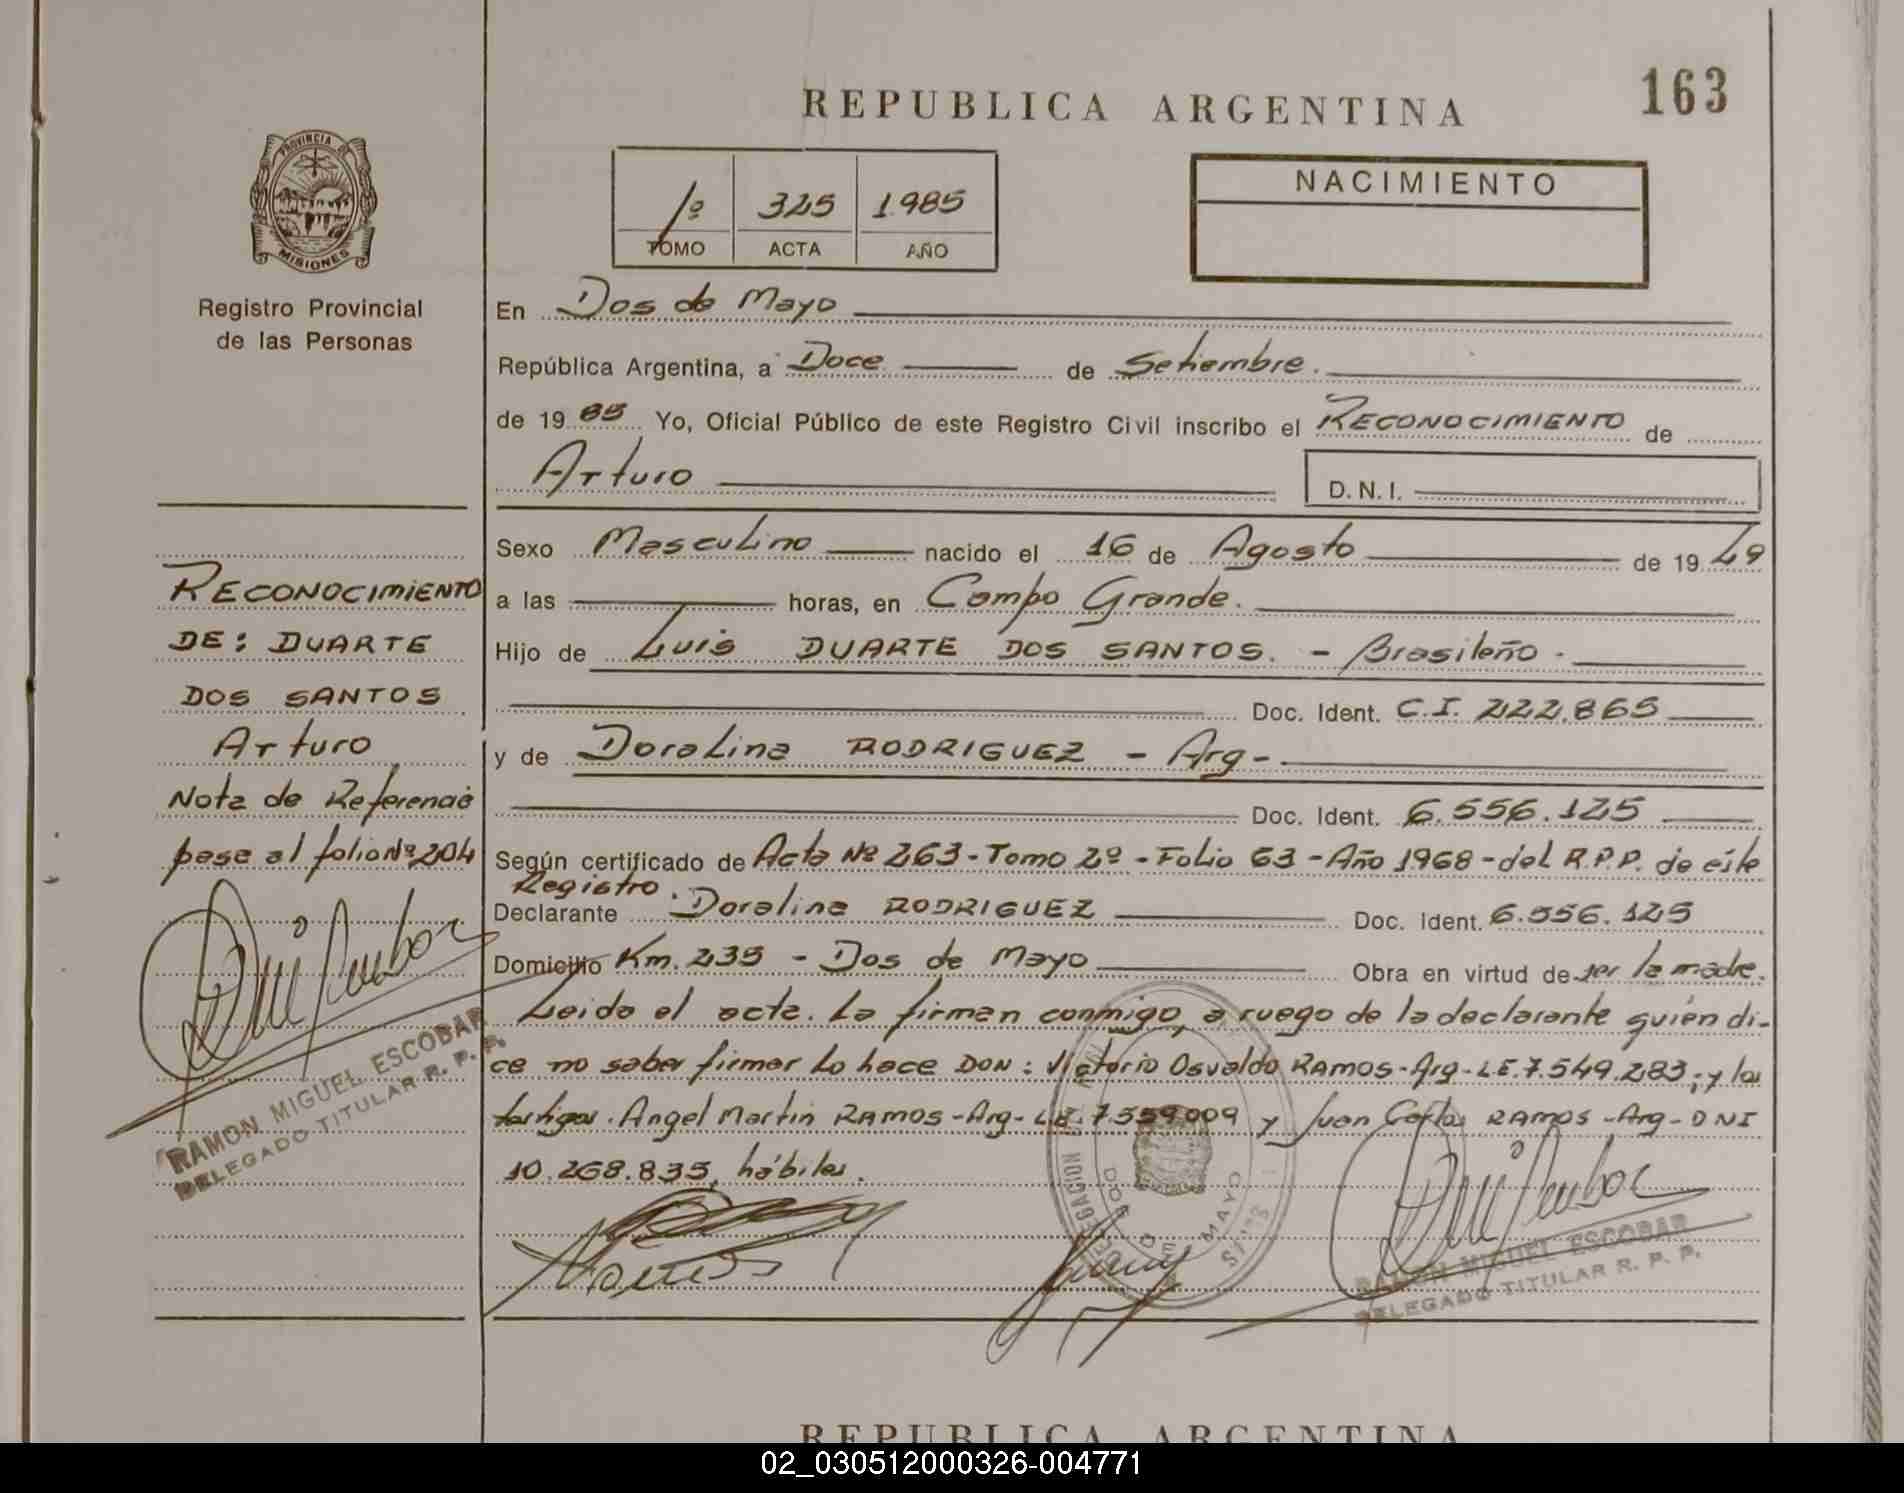 163
REPUBLICA ARGENTINA
PROVINCIA DE
MISIONES
Registro Provincial
de las Personas
1º 325 1.985
TOMO ACTA AÑO
NACIMIENTO
En Dos de Mayo
República Argentina, a Doce de Setiembre.
de 19 85 Yo, Oficial Público de este Registro Civil inscribo el RECONOCIMIENTO de
Arturo D.N.I.
Sexo Masculino nacido el 16 de Agosto de 19 49
a las horas, en Campo Grande.
Hijo de Luis DUARTE DOS SANTOS. - Brasileño -
Doc. Ident. C.I. 222.865
y de Doralina RODRIGUEZ - Arg -
Doc. Ident. 6.556.125
Según certificado de Acta Nº 263 - Tomo 2º - Folio 63 - Año 1968 - del R.P.P. de este
Registro.
Declarante Doralina RODRIGUEZ Doc. Ident. 6.556.125
Domicilio Km. 235 - Dos de Mayo Obra en virtud de ser la madre.
Leida el acta. La firman conmigo, a ruego de la declarante quién di-
ce no saber firmar lo hace DON: Victorio Osvaldo RAMOS - Arg - L.E. 7.549.283; y los
testigos. Angel Martin RAMOS - Arg - L.E. 7.559.009 y Juan Carlos RAMOS - Arg - DNI
10.268.835, hábiles.
RECONOCIMIENTO
DE: DUARTE
DOS SANTOS
Arturo
Nota de Referencia
pasa al folio Nº 204
RAMON MIGUEL ESCOBAR
DELEGADO TITULAR R. P. P.
DELEGACION
DOS DE MAYO
RAMON MIGUEL ESCOBAR
DELEGADO TITULAR R. P. P.
REPUBLICA ARGENTINA
02_030512000326-004771